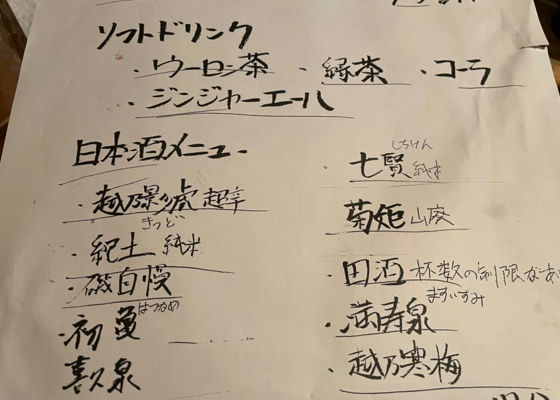 ソフトドリンク
・ウーロン茶 ・緑茶 ・コーラ
・ジンジャーエール
日本酒メニュー
・越乃景虎 超辛
・紀土 純米
きっど
・磯自慢
・初亀
はつかめ
喜久泉
・七賢 純米
しちけん
・菊姫 山廃
・田酒 杯数の制限なあ
・満寿泉
ますいずみ
・越乃寒梅